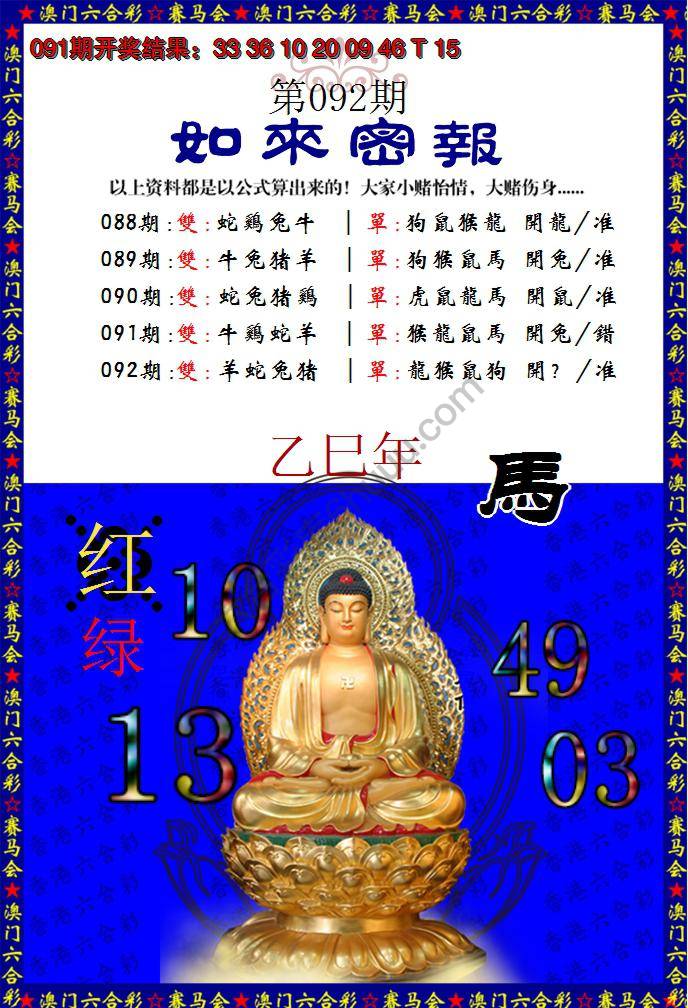 ★澳门六合彩☆赛马会★澳门六合彩☆赛马会★澳门六合彩☆赛马会★
091期开奖结果：33 36 10 20 09 46 T 15
第092期
如來密報
以上资料都是以公式算出来的！大家小赌怡情，大赌伤身......
088期：雙：蛇鷄兔牛 ｜單：狗鼠猴龍 開龍/准
089期：雙：牛兔猪羊 ｜單：狗猴鼠馬 開兔/准
090期：雙：蛇兔猪鷄 ｜單：虎鼠龍馬 開鼠/准
091期：雙：牛鷄蛇羊 ｜單：猴龍鼠馬 開兔/錯
092期：雙：羊蛇兔猪 ｜單：龍猴鼠狗 開？/准
乙巳年
馬
红
绿
10
49
13
03
★澳门六合彩☆赛马会★澳门六合彩☆赛马会★澳门六合彩☆赛马会★